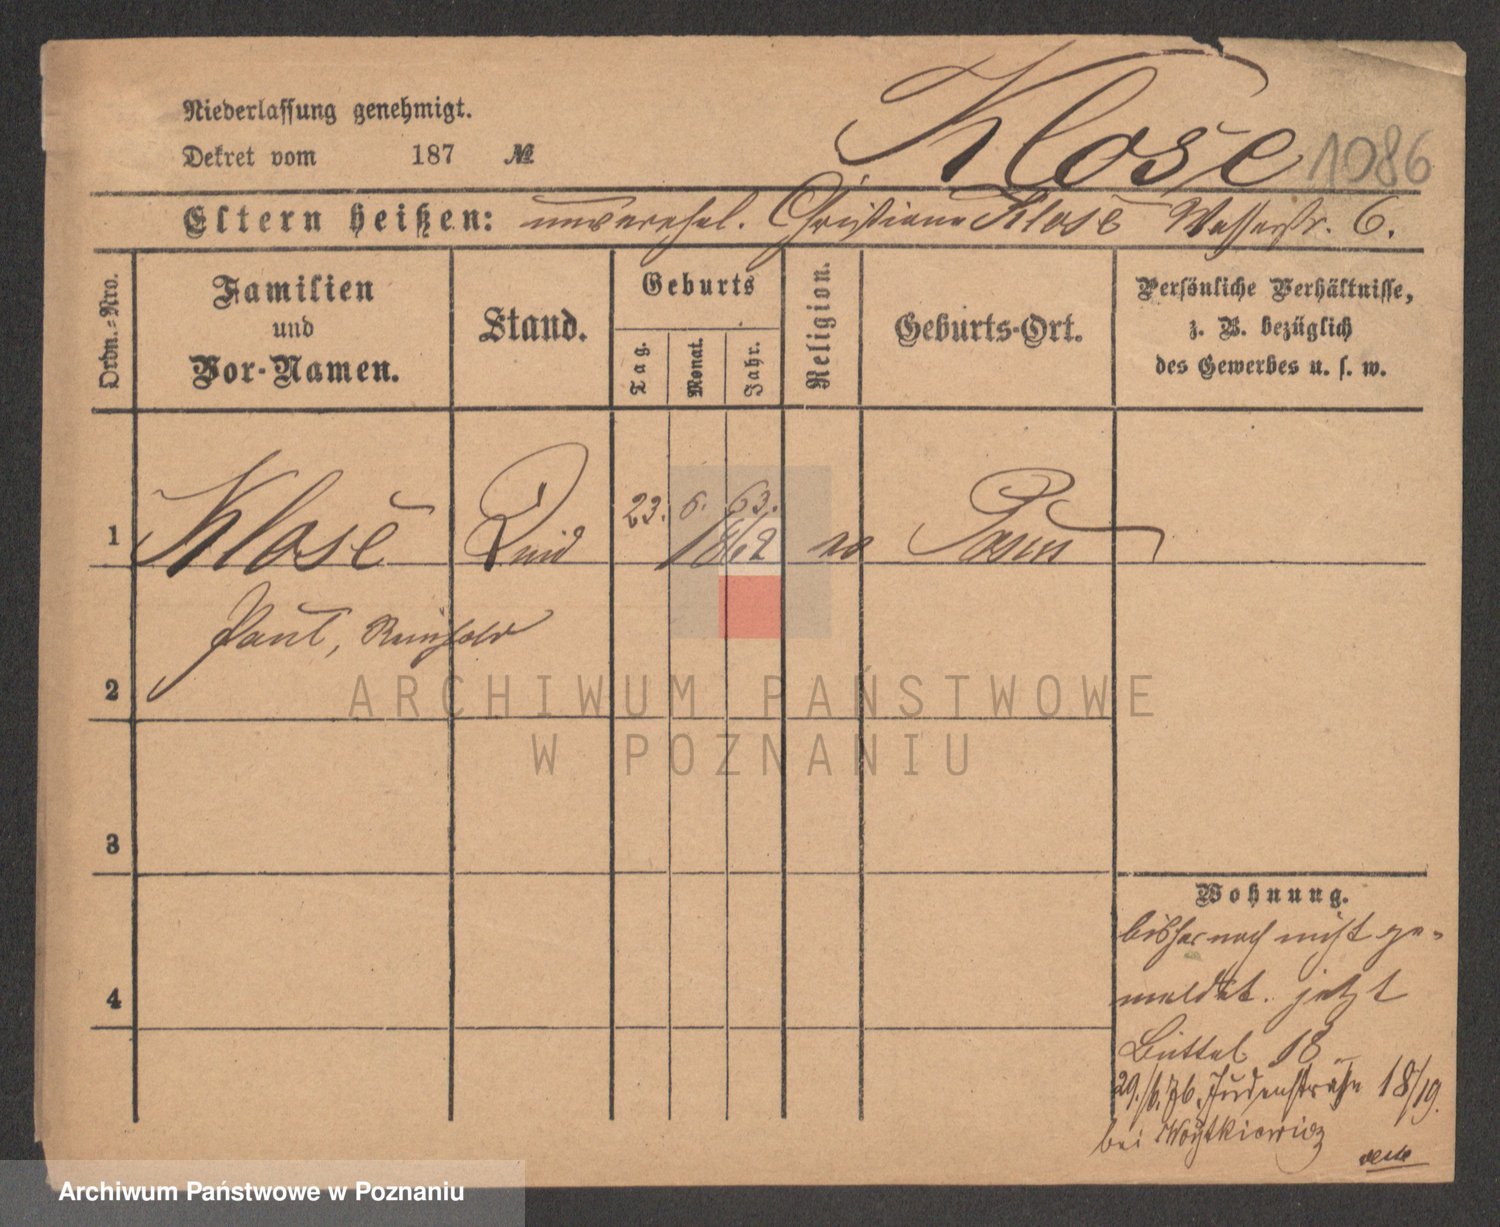 Niederlassung genehmigt.
Dekret vom 187 №
Klose 1086
Eltern heißen: unverehel. Christiane Klose Wasserstr. 6.
Ordn.=Nro.
Familien
und
Vor-Namen.
Stand.
Geburts
Tag.
Monat.
Jahr.
Religion.
Geburts-Ort.
Persönliche Verhältnisse,
z. B. bezüglich
des Gewerbes u. s. w.
1 Klose Kind 23. 6. 63. Posen
1862
Paul, Reinhold
2
ARCHIWUM PAŃSTWOWE
W POZNANIU
3
Wohnung.
bisher noch nicht ge-
meldet. jetzt
4
Büttel 18
29./6.76. Judenstraße 18/19.
bei Woytkiewicz
Archiwum Państwowe w Poznaniu